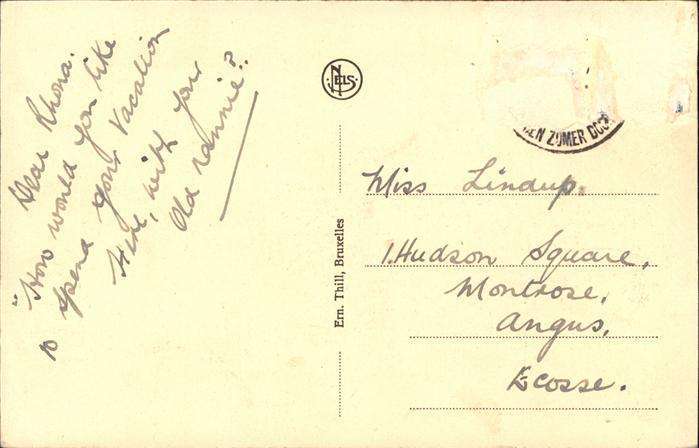 Dear Rhona.
"How would you like
to spend your Vacation
Here, with your
Old Nannie"?
NELS
EN ZOMER DOO
Ern. Thill, Bruxelles
Miss Lindup.
1. Hudson Square,
Montrose,
Angus,
Ecosse.